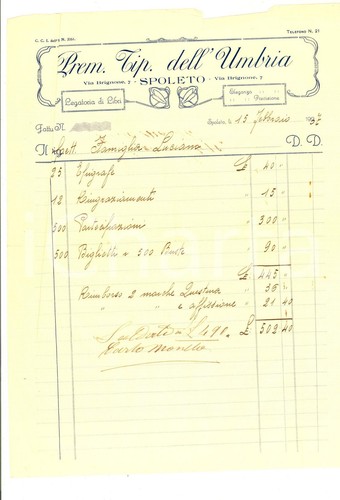 C. C. I.
TELEFONO N. 21
Prem. Tip. dell'Umbria
Via Brignone, 7 - SPOLETO - Via Brignone, 7
Legatoria di Libri
Eleganza
Precisione
Fattura N.
Spoleto, li 15 Febbraio
Spett. Famiglia Luciani D. D.
25 Epigrafi £ 40 "
12 Ringraziamenti " 15 "
500 Partecipazioni " 300 "
500 Biglietti e 500 Buste " 90 "
£ 445 "
Rimborso 2 marche Questura " 36 "
" " e affissione " 21 40
£ 502 40
Saldato £ 498.
Carlo